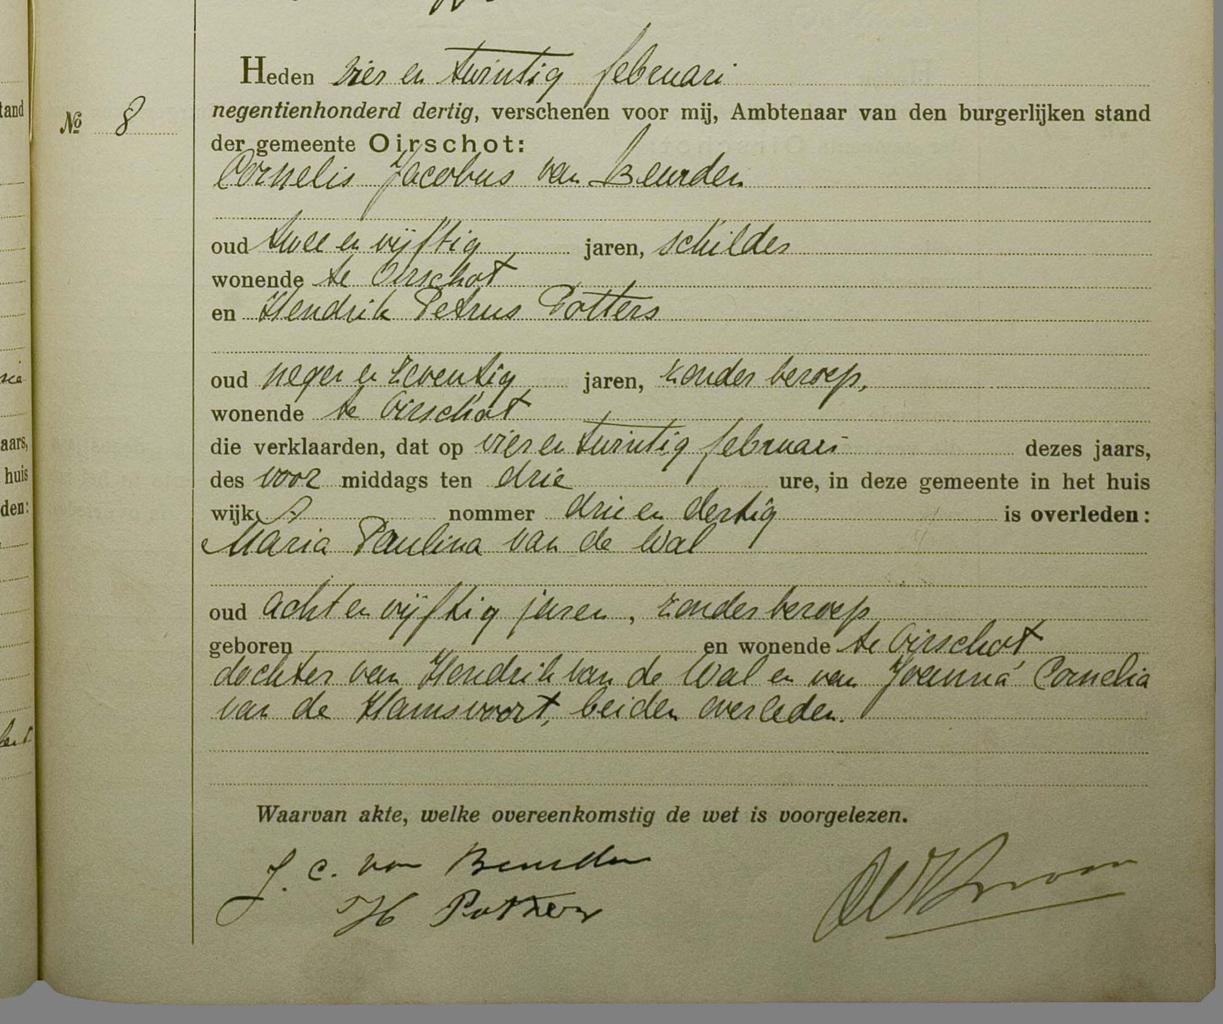 Heden vier en twintig februari
No 8
negentienhonderd dertig, verschenen voor mij, Ambtenaar van den burgerlijken stand
der gemeente Oirschot:
Cornelis Jacobus van Beurden
oud twee en vijftig jaren, schilder
wonende te Oirschot
en Hendrik Petrus Potters
oud negen en zeventig jaren, zonder beroep,
wonende te Oirschot
die verklaarden, dat op vier en twintig februari dezes jaars,
des voor middags ten drie ure, in deze gemeente in het huis
wijk nommer drie en dertig is overleden:
Maria Paulina van de Wal
oud acht en vijftig jaren, zonder beroep
geboren en wonende te Oirschot,
dochter van Hendrik van de Wal en van Joanna Cornelia
van de Hamsvoort, beiden overleden.
Waarvan akte, welke overeenkomstig de wet is voorgelezen.
J. C. van Beurden
H Potters
tand
aars,
huis
den: